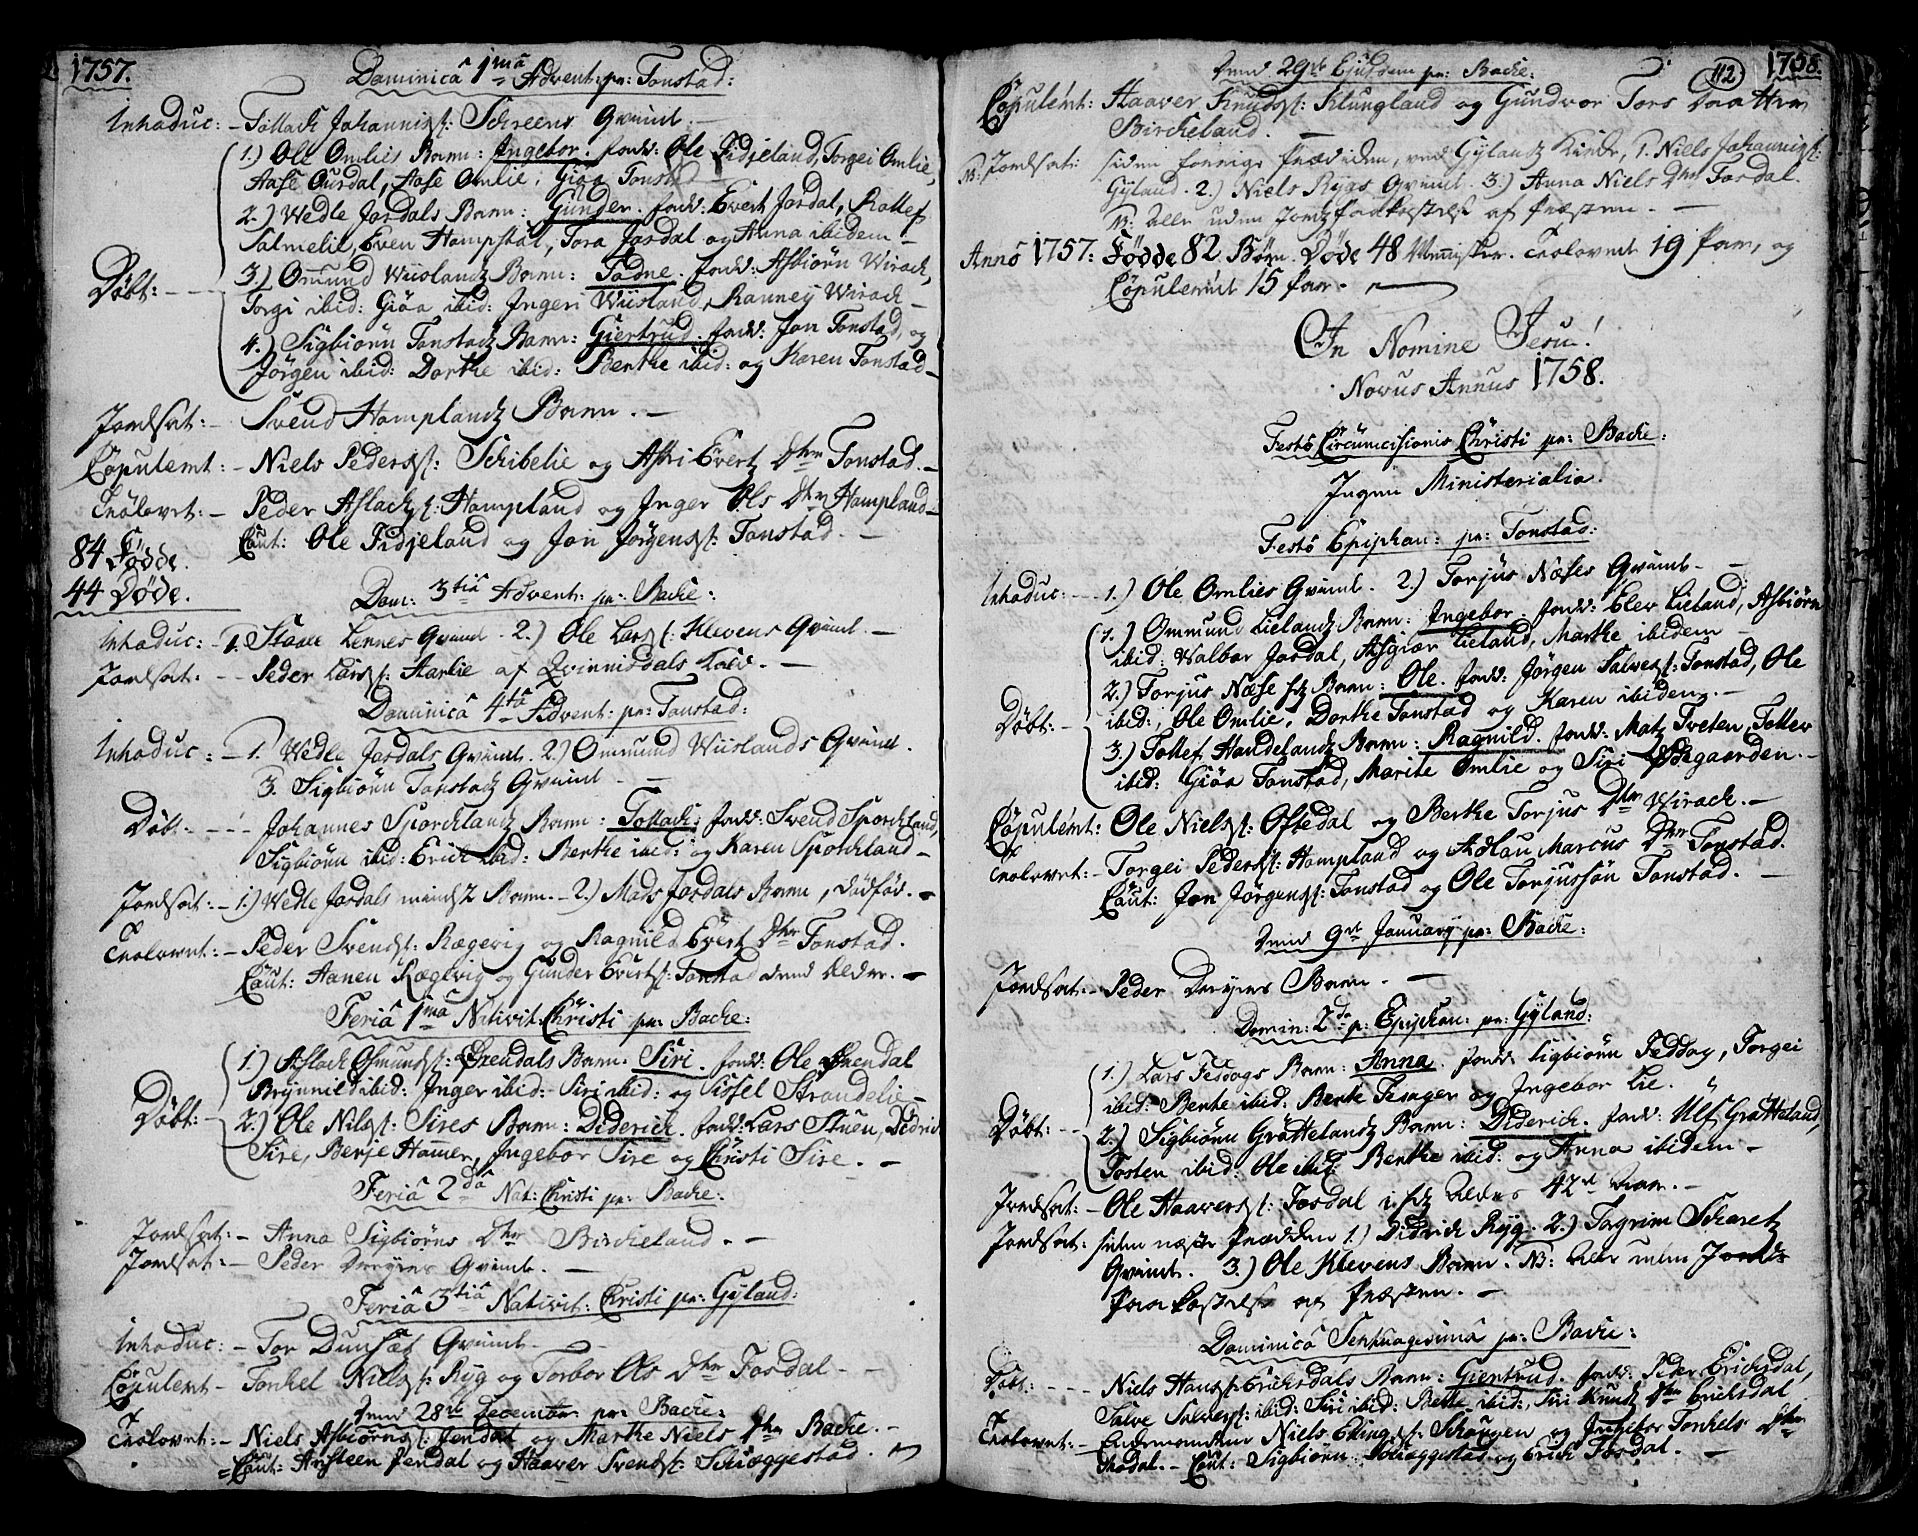 1757.
Dominica 1ma Advent: pr: Tonstad:
Introduc: - Tollack Johanness: Schreens Qvinde. -
1.) Ole Omlies Barn: Ingebor. fadd: Ole Fidjeland, Torgei Omlie,
Aase Ousdal, Aase Omlie, Giøa Tonst
2.) Wedle Josdals Barn: Gunder. fadd: Evert Josdal, Rollef
Salmelie, Even Hamps, Tora Josdal og Anna ibidem -
Døbt: - - 3.) Omund Wiislands Barn: Tadne. fadd: Asbiørn Wirack,
Torgi ibid: Giøa ibid: Inger Wiisland, Ranney Wirack -
4.) Sigbiørn Tonstads Barn: Giertrud. fadd: Jon Tonstad, og
Jørgen ibid: Dorthe ibid: Berthe ibid: og Karen Tonstad -
Jordsat: - Svend Hamplands Barn. -
Copuleret: - Niels Peders: Schibelie og Astri Everts Dtr Tonstad. -
Trolovet: - Peder Aslacks: Hampland og Inger Ols Dtr Hampland -
Caut: Ole Fidjeland og Jon Jørgens: Tonstad. -
84 Fødde.
44 Døde.
Dom: 3tia Advent: pr: Backe:
Introduc: - 1. Lennes Qvinde. 2.) Ole Lars: Klevens Qvinde. -
Jordsat: - - Peder Lars: Aarlie af Qvinnisdals -
Dominica 4ta Advent: pr: Tonstad:
Introduc: - 1. Wedle Josdals Qvinde. 2.) Ommund Wiislands Qvinde.
3. Sigbiørn Tonstads Qvinde. -
Døbt. - - - Johannes Sporcklands Barn: Tollack: fadd: Svend Sporckland,
Sigbiørn ibid: Erick ibid: Berthe ibid: og Karen Sporckland -
Jordsat: - 1.) Wedle Josdals mindste Barn. - 2.) Mads Josdals Barn, dødfød. -
Trolovet: - Peder Svends: Rægevig og Ragnild Everts Dtr Tonstad.
Caut: Aanen Rægevig og Gunder Everts: Tonstad -
Feria 1ma Nativit: Christi pr: Backe:
1.) Aslack Osmunds: Pendals Barn. Siri. fadd: Ole Pendal
Brynnild ibid: Inger ibid: Siri ibid: og Sissel Strandelie -
Døbt: - 2.) Ole Nils: Sires Barn: Diderick. fadd: Lars Stuen, Didrick
Sire, Berje Hamer, Ingebor Sire og Christi Sire. -
Feria 2da Nat: Christi pr: Backe:
Jordsat: - Anna Sigbiørns Dtr Birckeland. -
Jordsat: - Peder Qvinde. -
Feria 3tia Nativit: Christi pr: Gyland:
Introduc: - Tor Dunsæt Qvinde -
Copuleret - Torkel Niels: Ryg og Torbor Ols Dtr Josdal - -
28de December pr: Backe:
Trolovet: - Niels Asbiørns: Pendal og Marthe Niels Dtr Backe. -
Caut: Andsteen Pendal og Haaver Svends: Schieggestad.
1758.
112
29de Ejusdem pr: Backe:
Copuleret: Haaver Knuds: Klungland og Gundvor Tors Daatter
Birckeland. -
NB. Jordsat: siden forrige Prædiken, ved Gylands Kirke, 1. Niels Johannis:
Gyland. 2.) Niels Ryas Qvinde. 3.) Anna Niels Dtr Josdal.
NB. Alle uden Jords Paakastelse af Præsten. -
Anno 1757: Fødde 82 Børn. Døde 48 Mennisker. Trolovet 19 Par, og
Copuleret 15 Par. -
In Nomine Jesu!
Novus Annus 1758.
Festo Circumcisionis Christi pr: Backe:
Ingen Ministerialia.
Festo Epiphan: pr: Tonstad:
Introduc: - - 1.) Ole Omlies Qvinde. 2.) Torjus Næses Qvinde. -
1.) Ommund Lielands Barn: Ingebor. fadd: Elev Lieland, Asbiørn
ibid: Walbor Josdal, Asgiær Lieland, Marthe ibidem -
2.) Torjus Næse Barn: Ole. fadd: Jørgen Salves: Tonstad, Ole
Døbt: - ibid:, Ole Omlie, Dorthe Tonstad og Karen ibidem. -
3.) Tollef Handelands Barn: Ragnild. fadd: Mats Tveten, Tollev
ibid: Giøa Tonstad, Marite Omlie og Siri Ødegaarden. -
Copuleret: Ole Niels: Oftedal og Berthe Torjus Dtr Wirack. -
Trolovet: - Torgei Peders: Hampland og Adlau Marcus Dtr Tonstad.
Caut: Jon Jørgens: Tonstad og Ole Torjussøn Tonstad. -
9de January pr: Backe:
Jordsat: - Peder Barn. -
Domin: 2da p: Epiphan: pr: Gyland:
1.) Lars Feddogs Barn: Anna. fadd: Sigbiørn Feddog, Torgei
ibid: Bente ibid: Berte og Ingebor Lie.
Døbt: - - 2.) Sigbiørn Grøttelands Barn: Diderick. fadd: Ulf Grøtteland,
Tosten ibid: Ole ibid: Berthe ibid: og Anna ibidem -
Jordsat: - Ole Haavers: Josdal i sit Alders 42de Aar. -
Jordsat: siden næste Prædiken 1.) Didrick Ryg. 2.) Torgrim Skarets
Qvinde. 3.) Ole Klevens Barn. NB: Alle uden Jords
Paakastelse af Præsten. -
Dominica Septuagesima pr: Backe:
Døbt: - - - Niels Hans: Ericksdals Barn: Giertrud. fadd: Peder Ericksdal,
Salve Salves: ibid: Siri ibid: Berte ibid:, Siri Knuds Dtr Ericksdal
Trolovet: - Niels Ellings: og Ingebor Tonkels Dtr
. - Caut: Sigbiørn Schieggestad og Erick Josdal. -